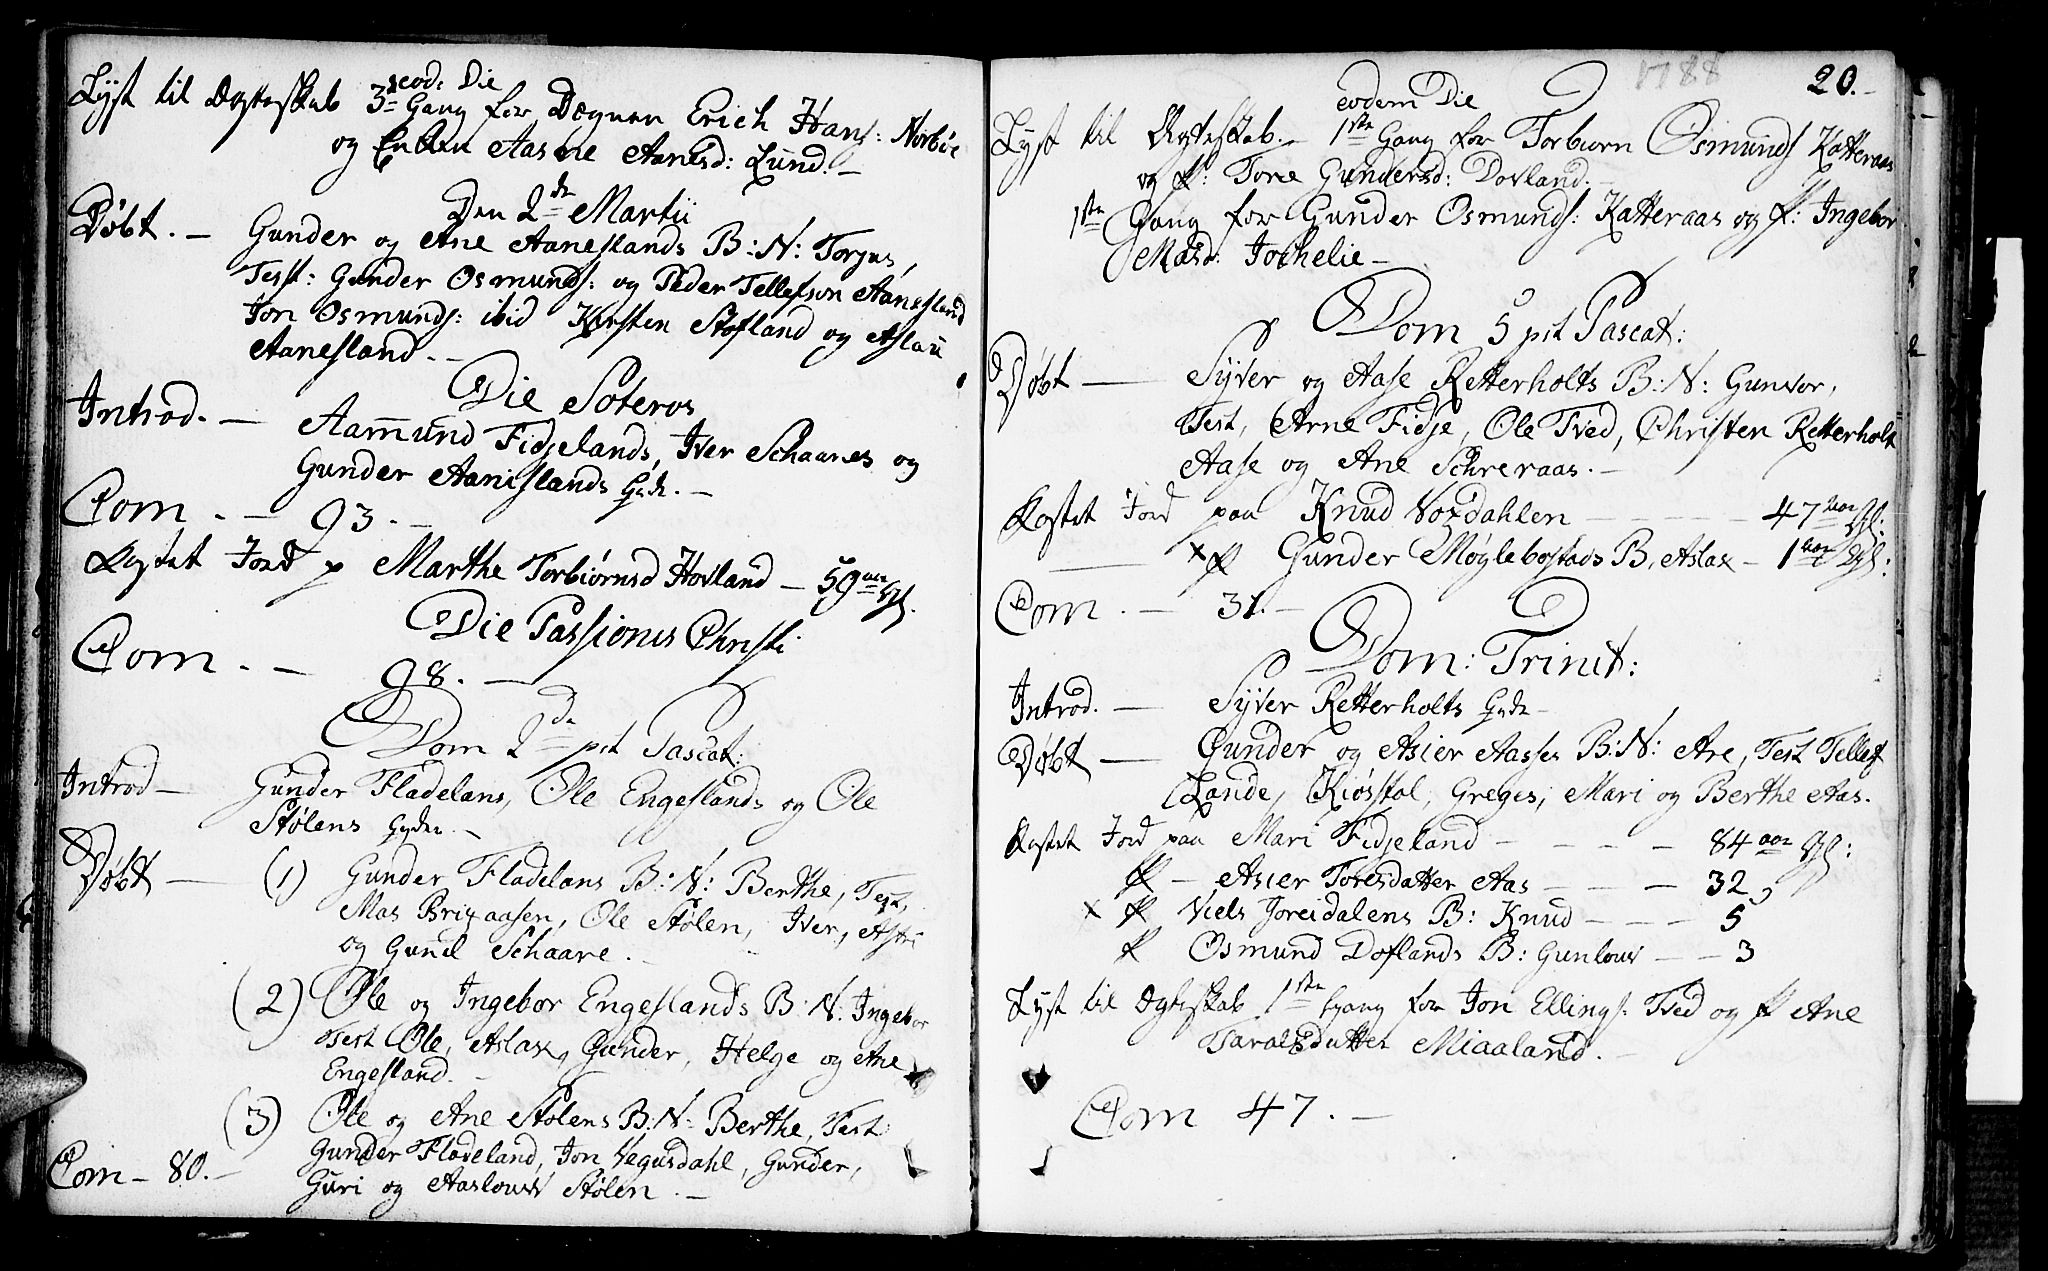 eod: Die
Lyst til Ægteskab 3die Gang for Degnen Erich Hans: Norbøe
og Enken Aasne Aanesd: Lund. –
Den 2de Martii
Døbt. – Gunder og Ane Aaneslands B: N: Torjus,
Test: Gunder Osmunds: og Peder Tellefson Aanesland
Jon Osmunds: ibid Kirsten Stofland og Aslau
Aanesland. –
Die Soteros
Introd. – Aamund Fidjelands, Iver Schaanes og
Gunder Aanislands
Com. – 93. –
Kastet Jord p Marthe Torbiørnsd Hovland – 59 aar gl.
Die Passionis Christi
Com. – 98. –
Dom 2de pst Pascat:
Introd – Gunder Fladelans, Ole Engeslands og Ole
Stølens
Døbt – (1) Gunder Fladelans B: N: Berthe, Test,
Mas Brixaasen, Ole Stølen, Iver, Astri
og Gunil Schaare. –
(2) Ole og Ingebor Engeslands B: N: Ingebor
Test Ole, Aslax, Gunder, Helge og Ane
Engesland. –
(3) Ole og Ane Stølens B: N: Berthe, Test:
Gunder Fladeland, Jon Vegusdahl, Gunder,
Com – 80. – Guri og Aaslouv Stølen. –
1788
20. –
eodem Die
Lyst til Ægteskab. – 1ste Gang for Torbiorn Osmunds Katteraas
og P: Tone Gundersd: Dovland. –
1ste Gang for Gunder Osmunds: Katteraas og P: Ingebor
Masd: –
Dom 5 pst Pascat:
Døbt – Syver og Aase Retterholts B: N: Gunvor,
Test, Arne Fidje, Ole Tved, Christen Retterholt
Aase og Ane Schreraas. –
Kastet Jord paa Knud Nordahlen – 47 aar gl:
x P Gunder Møglebostads B, Aslax – 1 aar gl:
Com. – 31. –
Dom: Trinit:
Introd. – Syver Retterholts
Døbt – Gunder og Asier Aasses B: N: Are, Test Tellef
Lande, Kiøstol, Greges, Mari og Berthe Aas.
Kastet Jord paa Mari Fidjeland – 84 aar gl:
P – Asier Toresdatter Aas – 32,
x P Niels Joreidalens B: Knud – 5
P Osmund Doflands B: Gunlouv – 3
Lyst til Ægteskab 1ste Gang for Jon Ellings: Tved og P Ane
Taraldsdatter Miaaland. –
Com 47. –